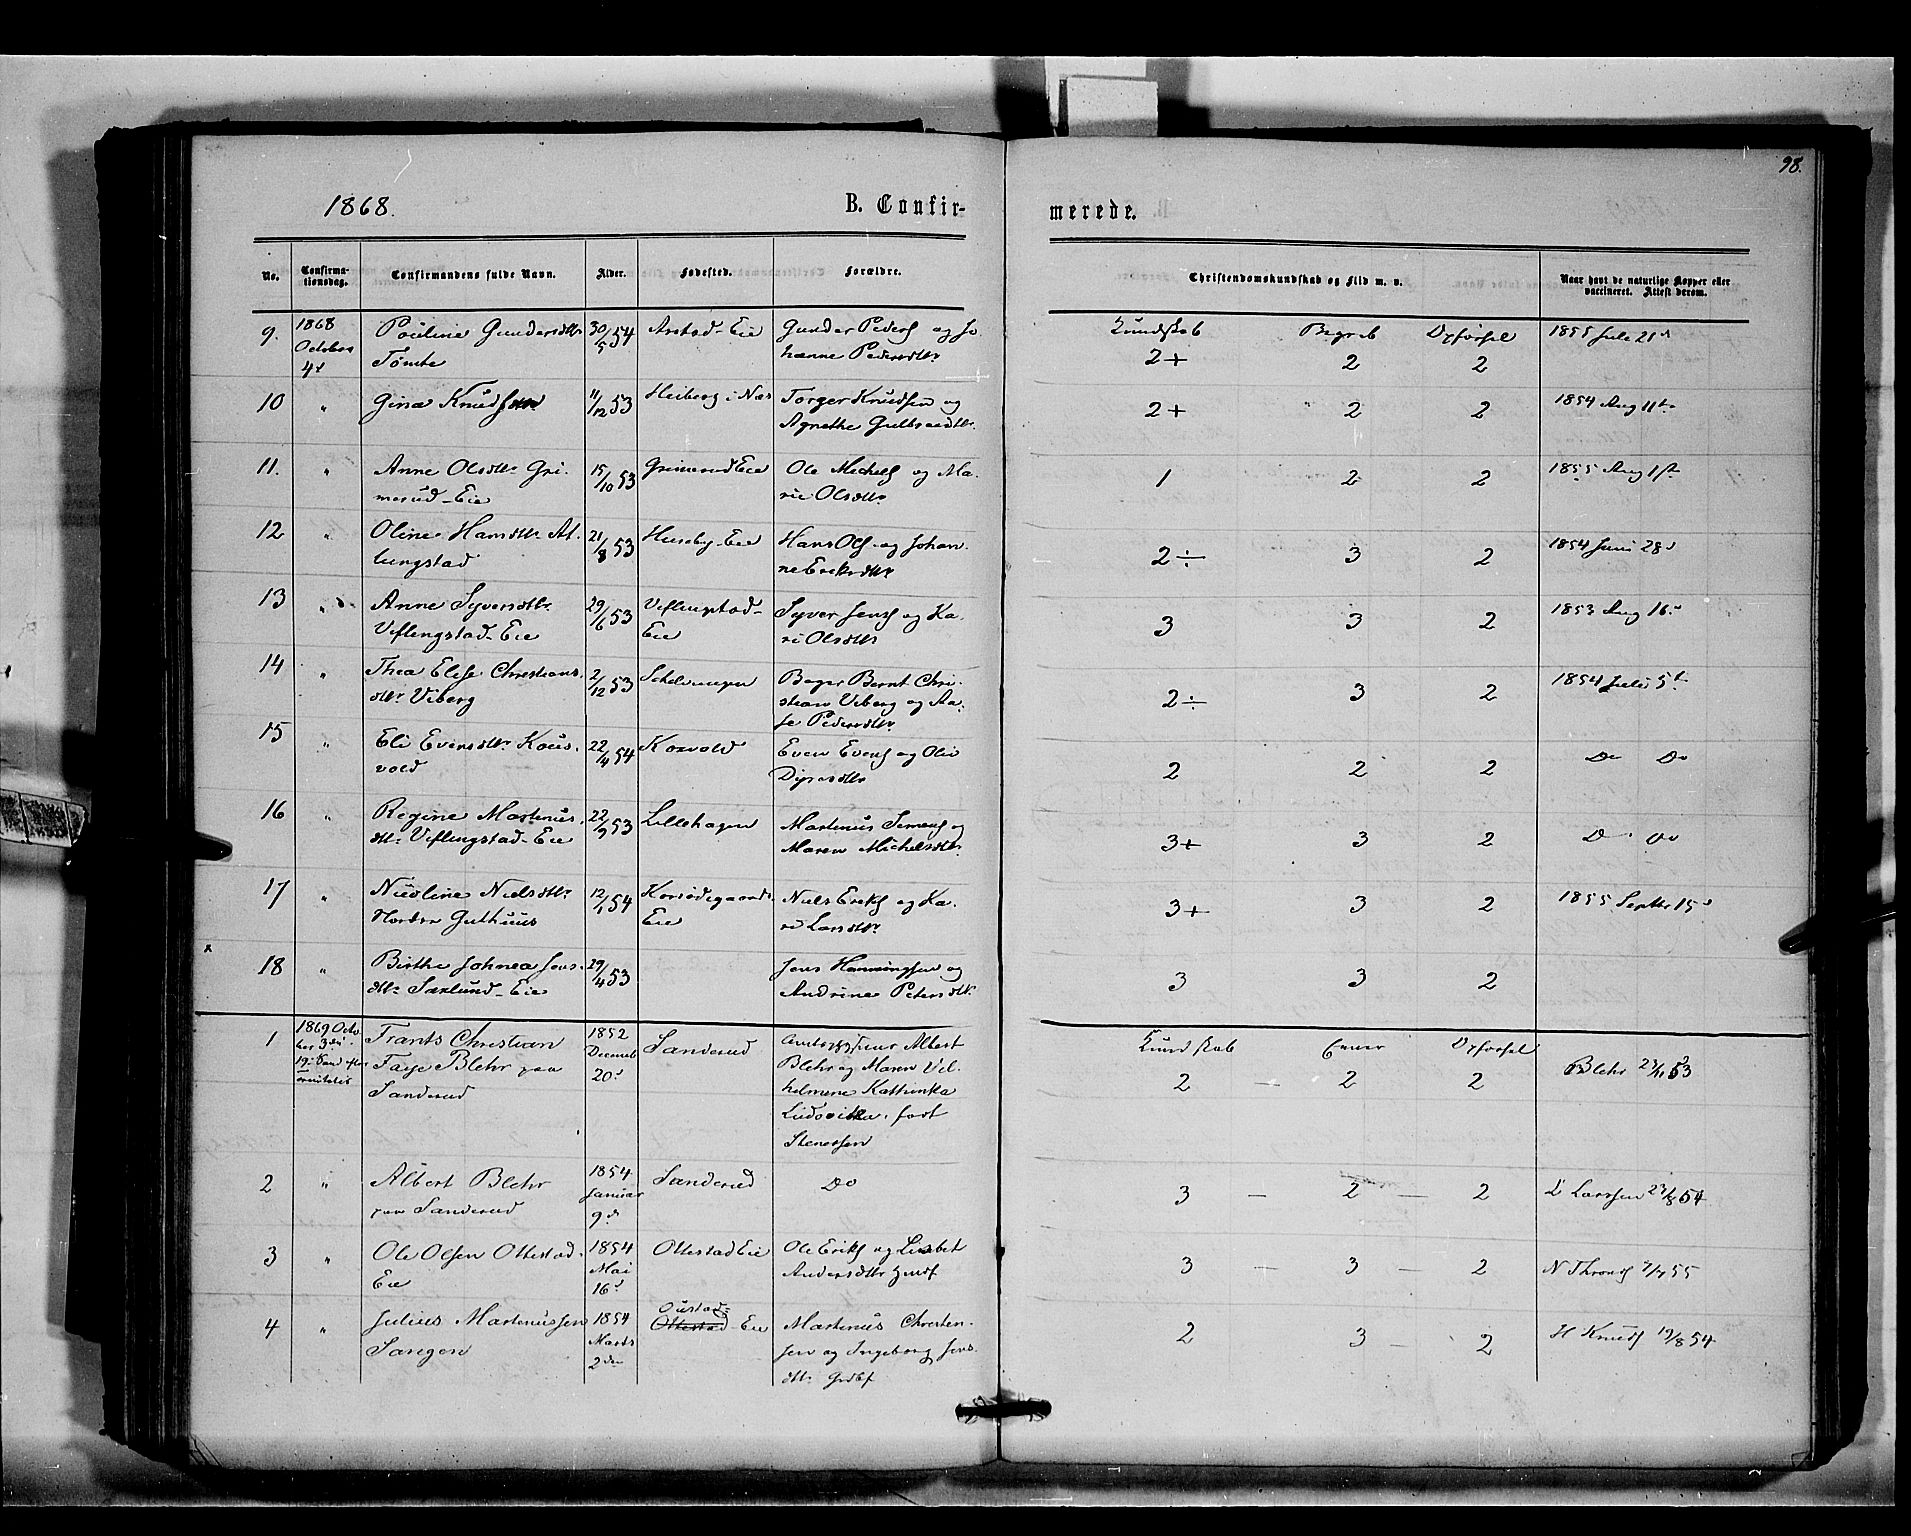 98.
1868.
B. Confir-
merede.
No.
Confirma-
tionsdag.
Confirmandens fulde Navn.
Alder.
Fødested.
Forældre.
Christendomskundskab og Flid m. v.
Naar havt de naturlige Kopper eller
vaccineret. Attest derom.
9.
1868
October
4d
Pauline Gundersdtr
Tomte
30/5 54
Arstad-Eie
Gunder Peders og Jo-
hanne Pedersdtr
Kundskab
Begreb
Opførsel
2+
2
2
1855 Juli 21d
10
"
Gina Knudsdtr
11/12 53
Heiberg i Næs
Torger Knudsen og
Agnethe Gulbrandtr.
2+
2
2
1854 Aug 11te
11.
"
Anne Olsdtr Gri-
merud-Eie
15/10 53
Grimerud Eie
Ole Michels og Ma-
rie Olsdtr
1
2
2
1855 Aug 1ste
12
"
Oline Hansdtr At-
lungstad
21/8 53
Huseby-Eie
Hans Ols og Johan-
ne Eriksdtr
2÷
3
2
1854 Juni 28d
13
"
Anne Syversdtr
Viflengstad-Eie
29/6 53
Viflengstad-
Eie
Syver Jens og Ka-
ri Olsdtr
3
3
2
1853 Aug 16d
14
"
Thea Elise Christians-
dtr Viberg
2/12 53
Bager Bernt Chri-
stian Viberg og Aa-
se Pedersdtr
2÷
3
2
1854 Juli 5t
15
"
Eli Evensdtr Kous-
vold
22/4 54
Kosvold
Even Evens og Oliv
2
2
2
Do Do
16
"
Regine Martinus-
dtr Viflengstad-Eie
22/9 53
Lillehagen
Martinus Simens og
Maren Michelsdtr
3+
3
2
Do Do
17
"
Nicoline Nielsdtr
Nordre Guthuus
12/1 54
Korsødegaards
Eie
Niels Eriks og Ka-
ri Larsdtr
3+
3
2
1855 Septbr 15d
x
18
"
Birthe Johnea Jens-
dtr Saxlund-Eie
29/4 53
Jens Henningsen og
Andrine Petersdtr
3
3
2
1
1869 Octo-
ber 3die
19. Sønd efter
Trinitatis
Frants Christian
Faye Blehr paa
Sanderud
1852
Decemb
20d
Sanderud
Jens Albert
Blehr og Maren Vil-
helmine Kathinka
Ludovika, født
Stenersen
Kundskab
Evner
Opførsel
2 —
2
2
Blehr 23/11 53
2
"
Albert Blehr
paa Sanderud
1854
Januar
9de
Sanderud
Do
3 —
2 —
2
L Larssen 23/8 54
3
"
Ole Olsen Ottestad-
Eie
1854
Mai
16d
Ottestad Eie
Ole Eriks og Lisbet
Andersdtr Gmdf
3 —
3 —
2
N Thronds 55
4
"
Julius Martinussen
Sangen
1854
Marts
2den
Oustad-
Ottestad-Eie
Martinus Christen-
sen og Ingeborg Jens-
dtr Grdbf
2
3 —
2
H Knuds 19/8 54